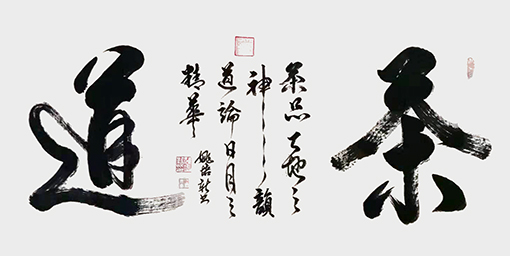 茶
茶品天地之
神韻
道論日月之
精華
道